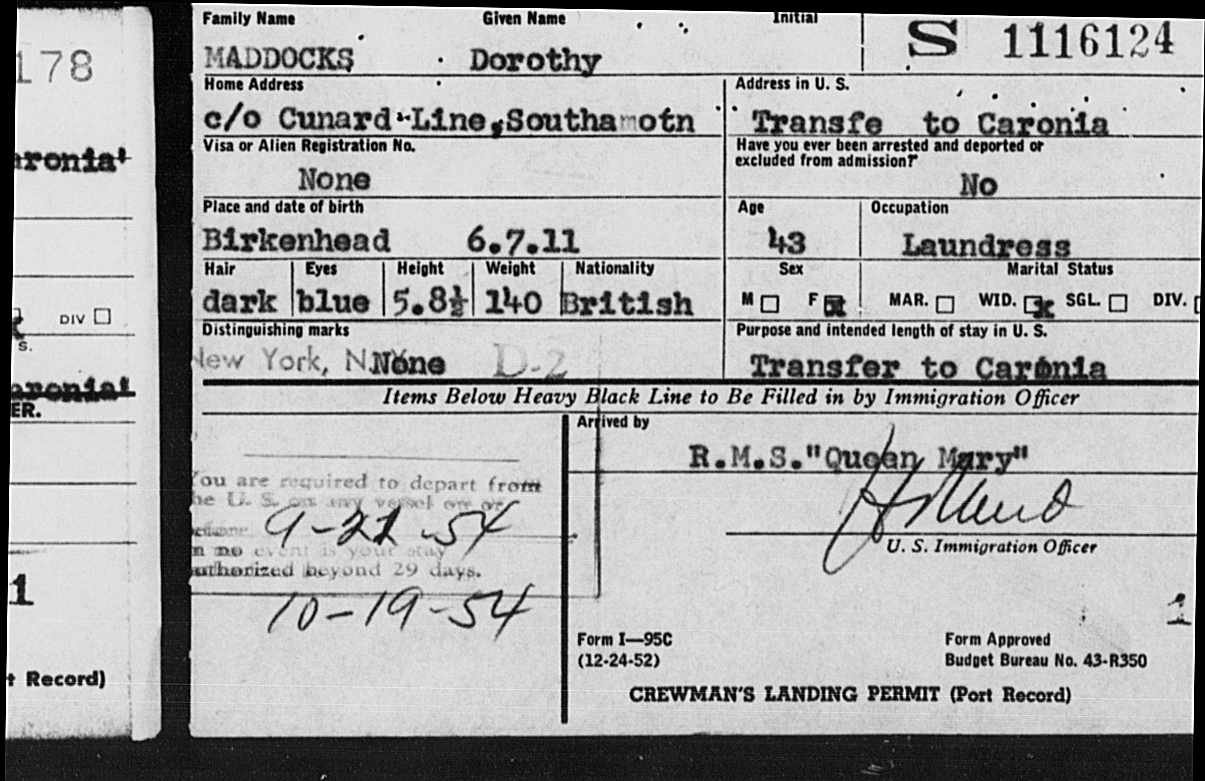 178
aronia'
DIV
S.
aronia'
ER.
1
Record)
Family Name Given Name Initial
S 1116124
MADDOCKS Dorothy
Home Address Address in U. S.
c/o Cunard Line, Southamotn Transfe to Caronia
Visa or Alien Registration No. Have you ever been arrested and deported or
excluded from admission?
None No
Place and date of birth Age Occupation
Birkenhead 6.7.11 43 Laundress
Hair Eyes Height Weight Nationality Sex Marital Status
dark blue 5.8½ 140 British M F MAR. WID. SGL. DIV.
Distinguishing marks Purpose and intended length of stay in U. S.
New York, N.Y. None D-2 Transfer to Caronia
Items Below Heavy Black Line to Be Filled in by Immigration Officer
Arrived by
R.M.S."Queen Mary"
You are required to depart from
the U. S. on any vessel on or
before 9-21-54
in no event is your stay
authorized beyond 29 days.
10-19-54
U. S. Immigration Officer
1
Form I—95C Form Approved
(12-24-52) Budget Bureau No. 43-R350
CREWMAN'S LANDING PERMIT (Port Record)